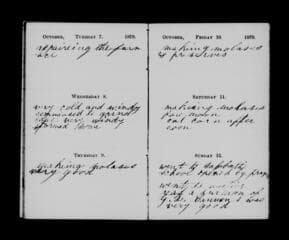 October, Tuesday 7. 1879.
repaireing the farm
Wednesday 8.
very cold and windy
commenced to grind
cane very windy
Thursday 9.
making molases
very good
October, Friday 10. 1879.
making molases
& preserves
Saturday 11.
making molases
fore noon
cut corn after
noon
Sunday 12.
went to sabbath
school opened by
went to
was a
very good